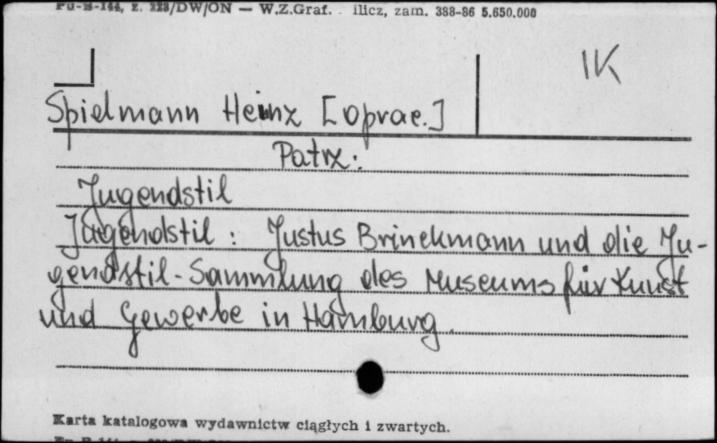 Pu-B-144, z. 223/DW/ON — W.Z.Graf. . ilicz, zam. 388-86 5.650.000
1K
Spielmann Heinz [oprac.]
Patrz:
Jugendstil
Jugendstil : Justus Brinckmann und die Ju-
gendstil-Sammlung des Museums für Kunst
und Gewerbe in Hamburg.
Karta katalogowa wydawnictw ciągłych i zwartych.